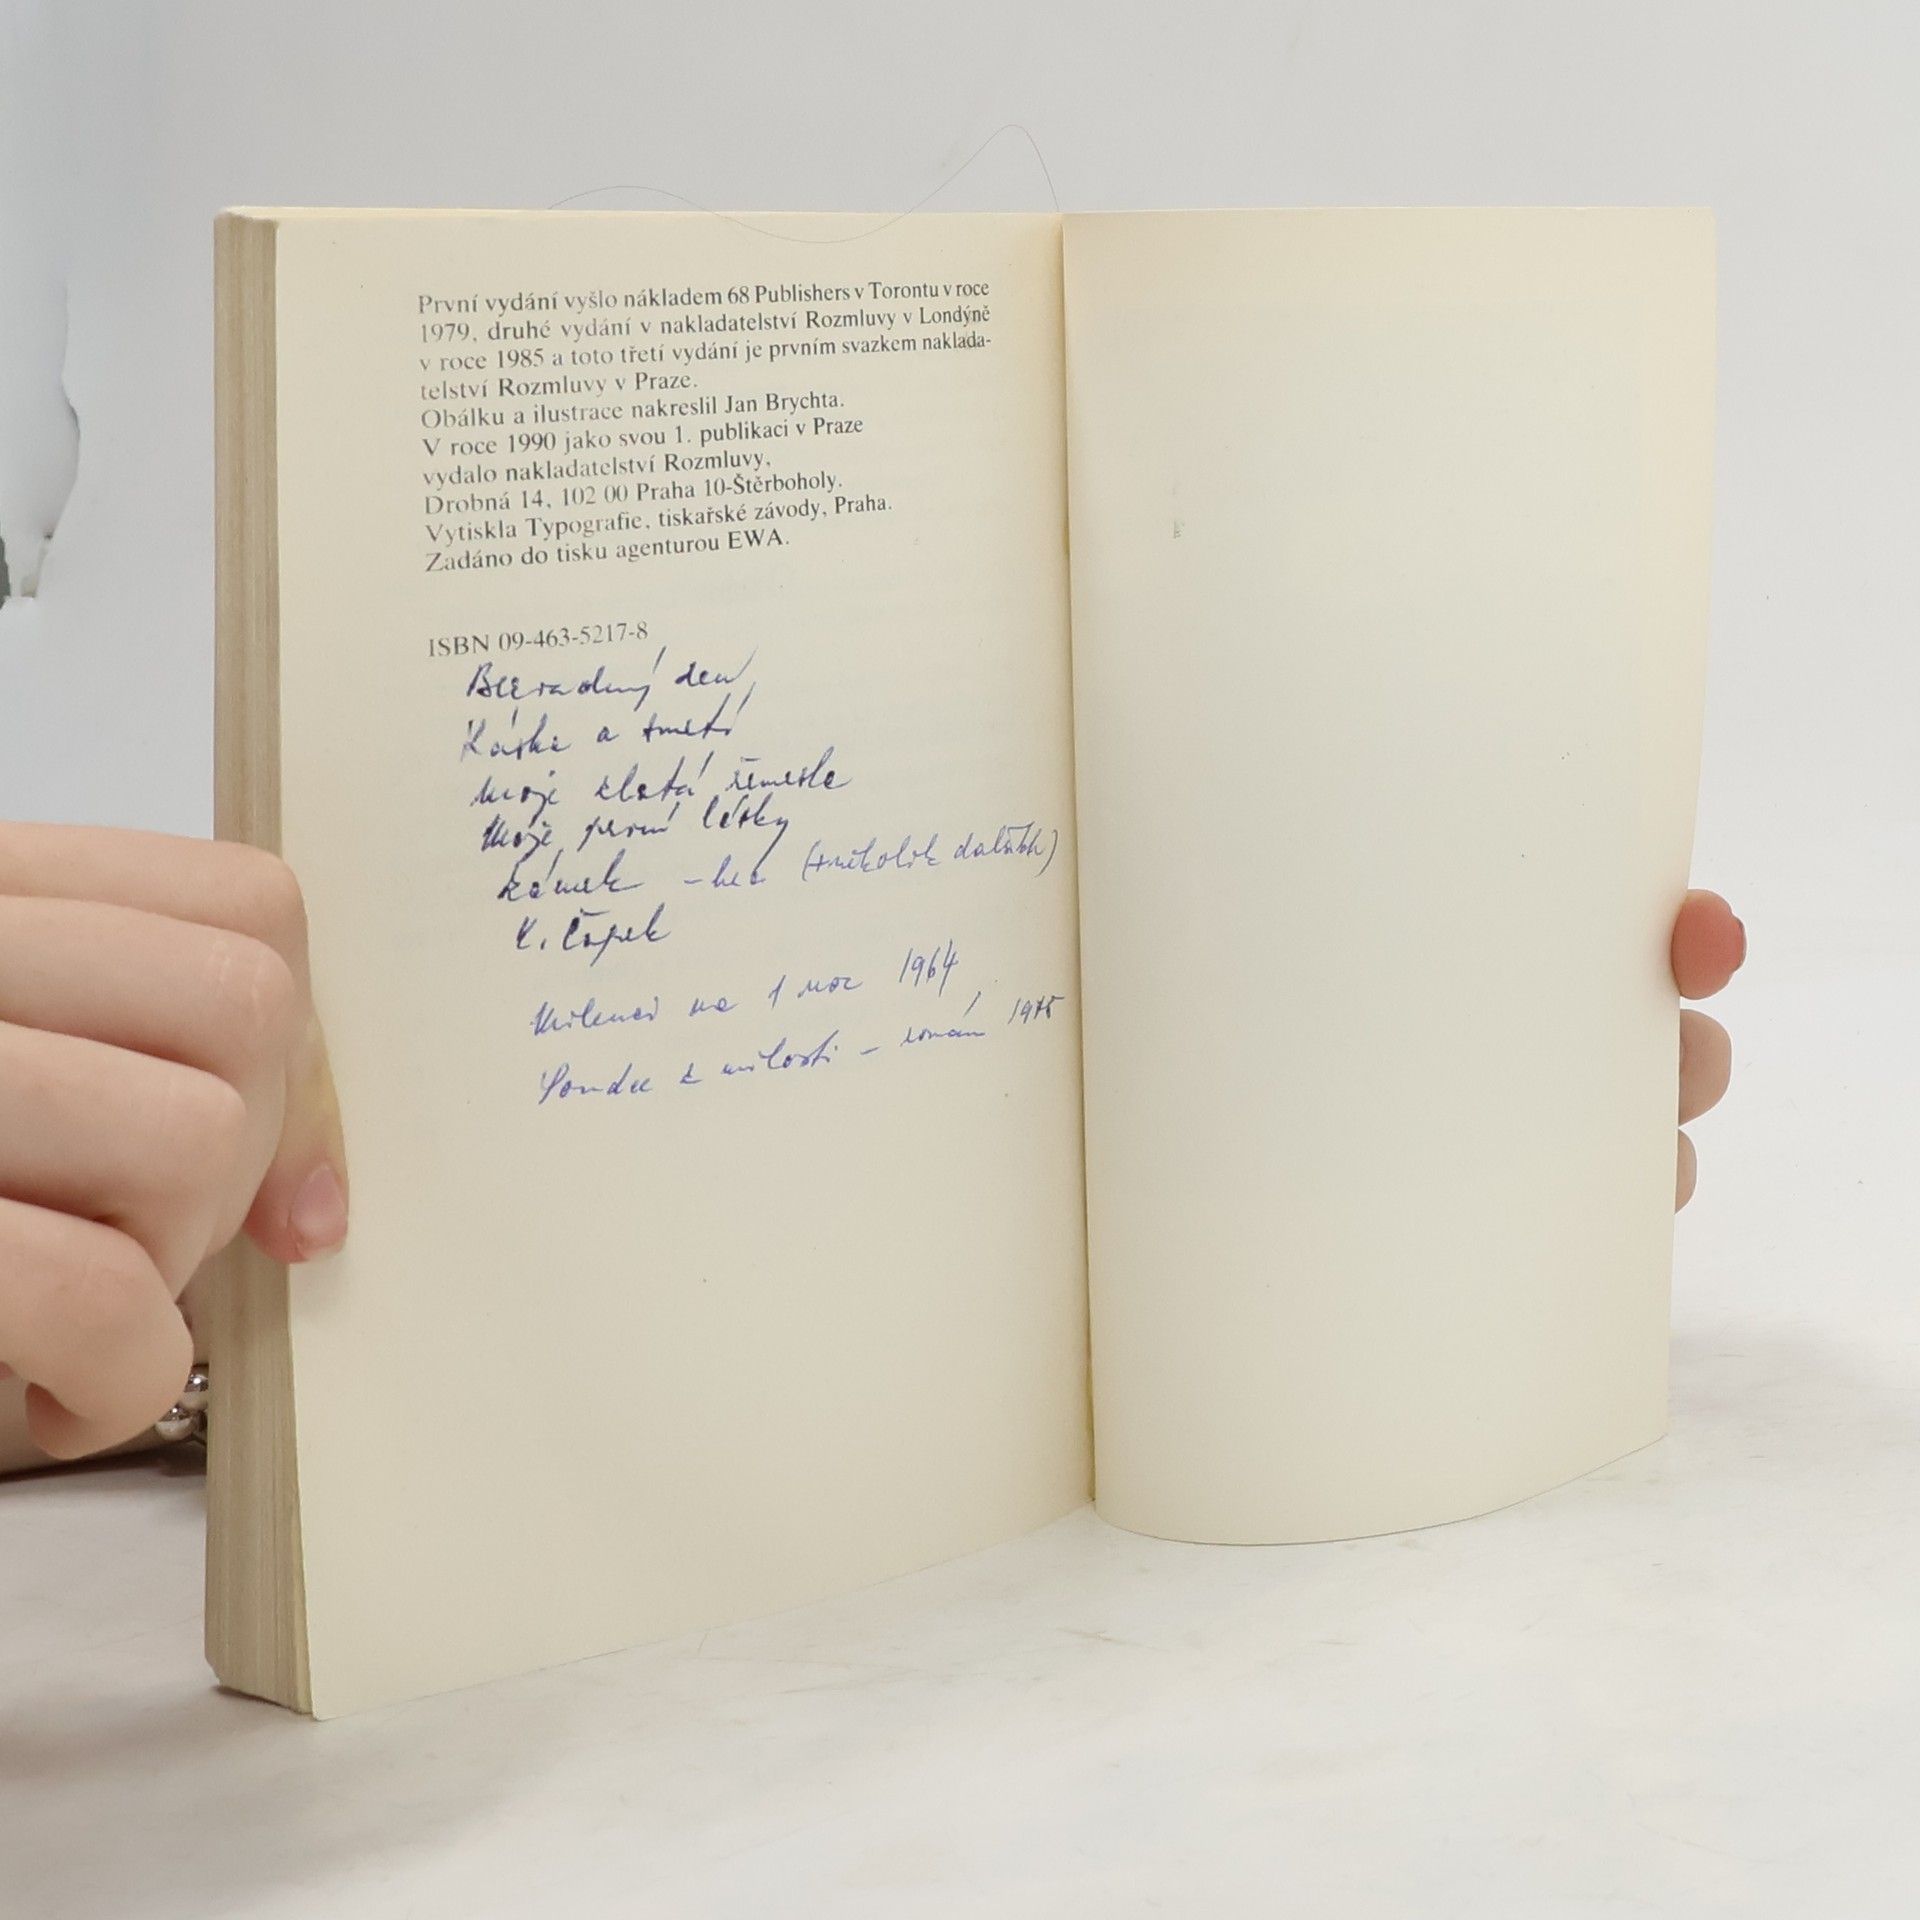 První vydání vyšlo nákladem 68 Publishers v Torontu v roce
1979, druhé vydání v nakladatelství Rozmluvy v Londýně
v roce 1985 a toto třetí vydání je prvním svazkem naklada-
telství Rozmluvy v Praze.
Obálku a ilustrace nakreslil Jan Brychta.
V roce 1990 jako svou 1. publikaci v Praze
vydalo nakladatelství Rozmluvy,
Drobná 14, 102 00 Praha 10-Štěrboholy.
Vytiskla Typografie, tiskařské závody, Praha.
Zadáno do tisku agenturou EWA.
ISBN 09-463-5217-8
den
Láska a smetí
Moje zlatá řemesla
Moje první lásky
Zámek - hra (+několik dalších)
K. Čapek
Milenci na 1 noc 1964
z milosti - román 1975